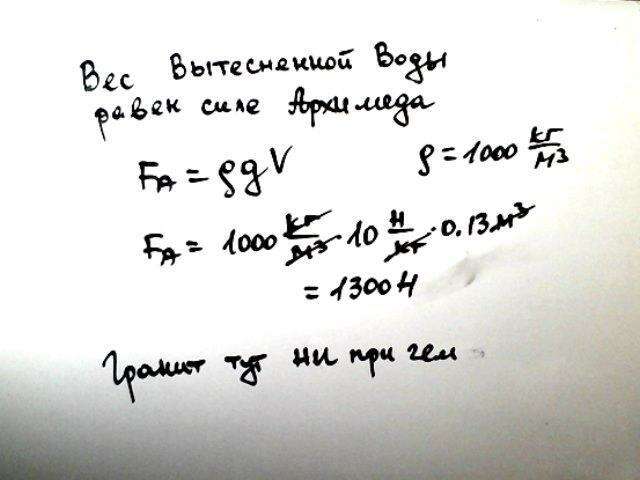 Вес вытесненной воды
равен силе Архимеда
F_A = ρgV ρ = 1000 кг/м³
F_A = 1000 кг/м³ · 10 Н/кг · 0.13 м³
= 1300 Н
Гранит тут ни при чем